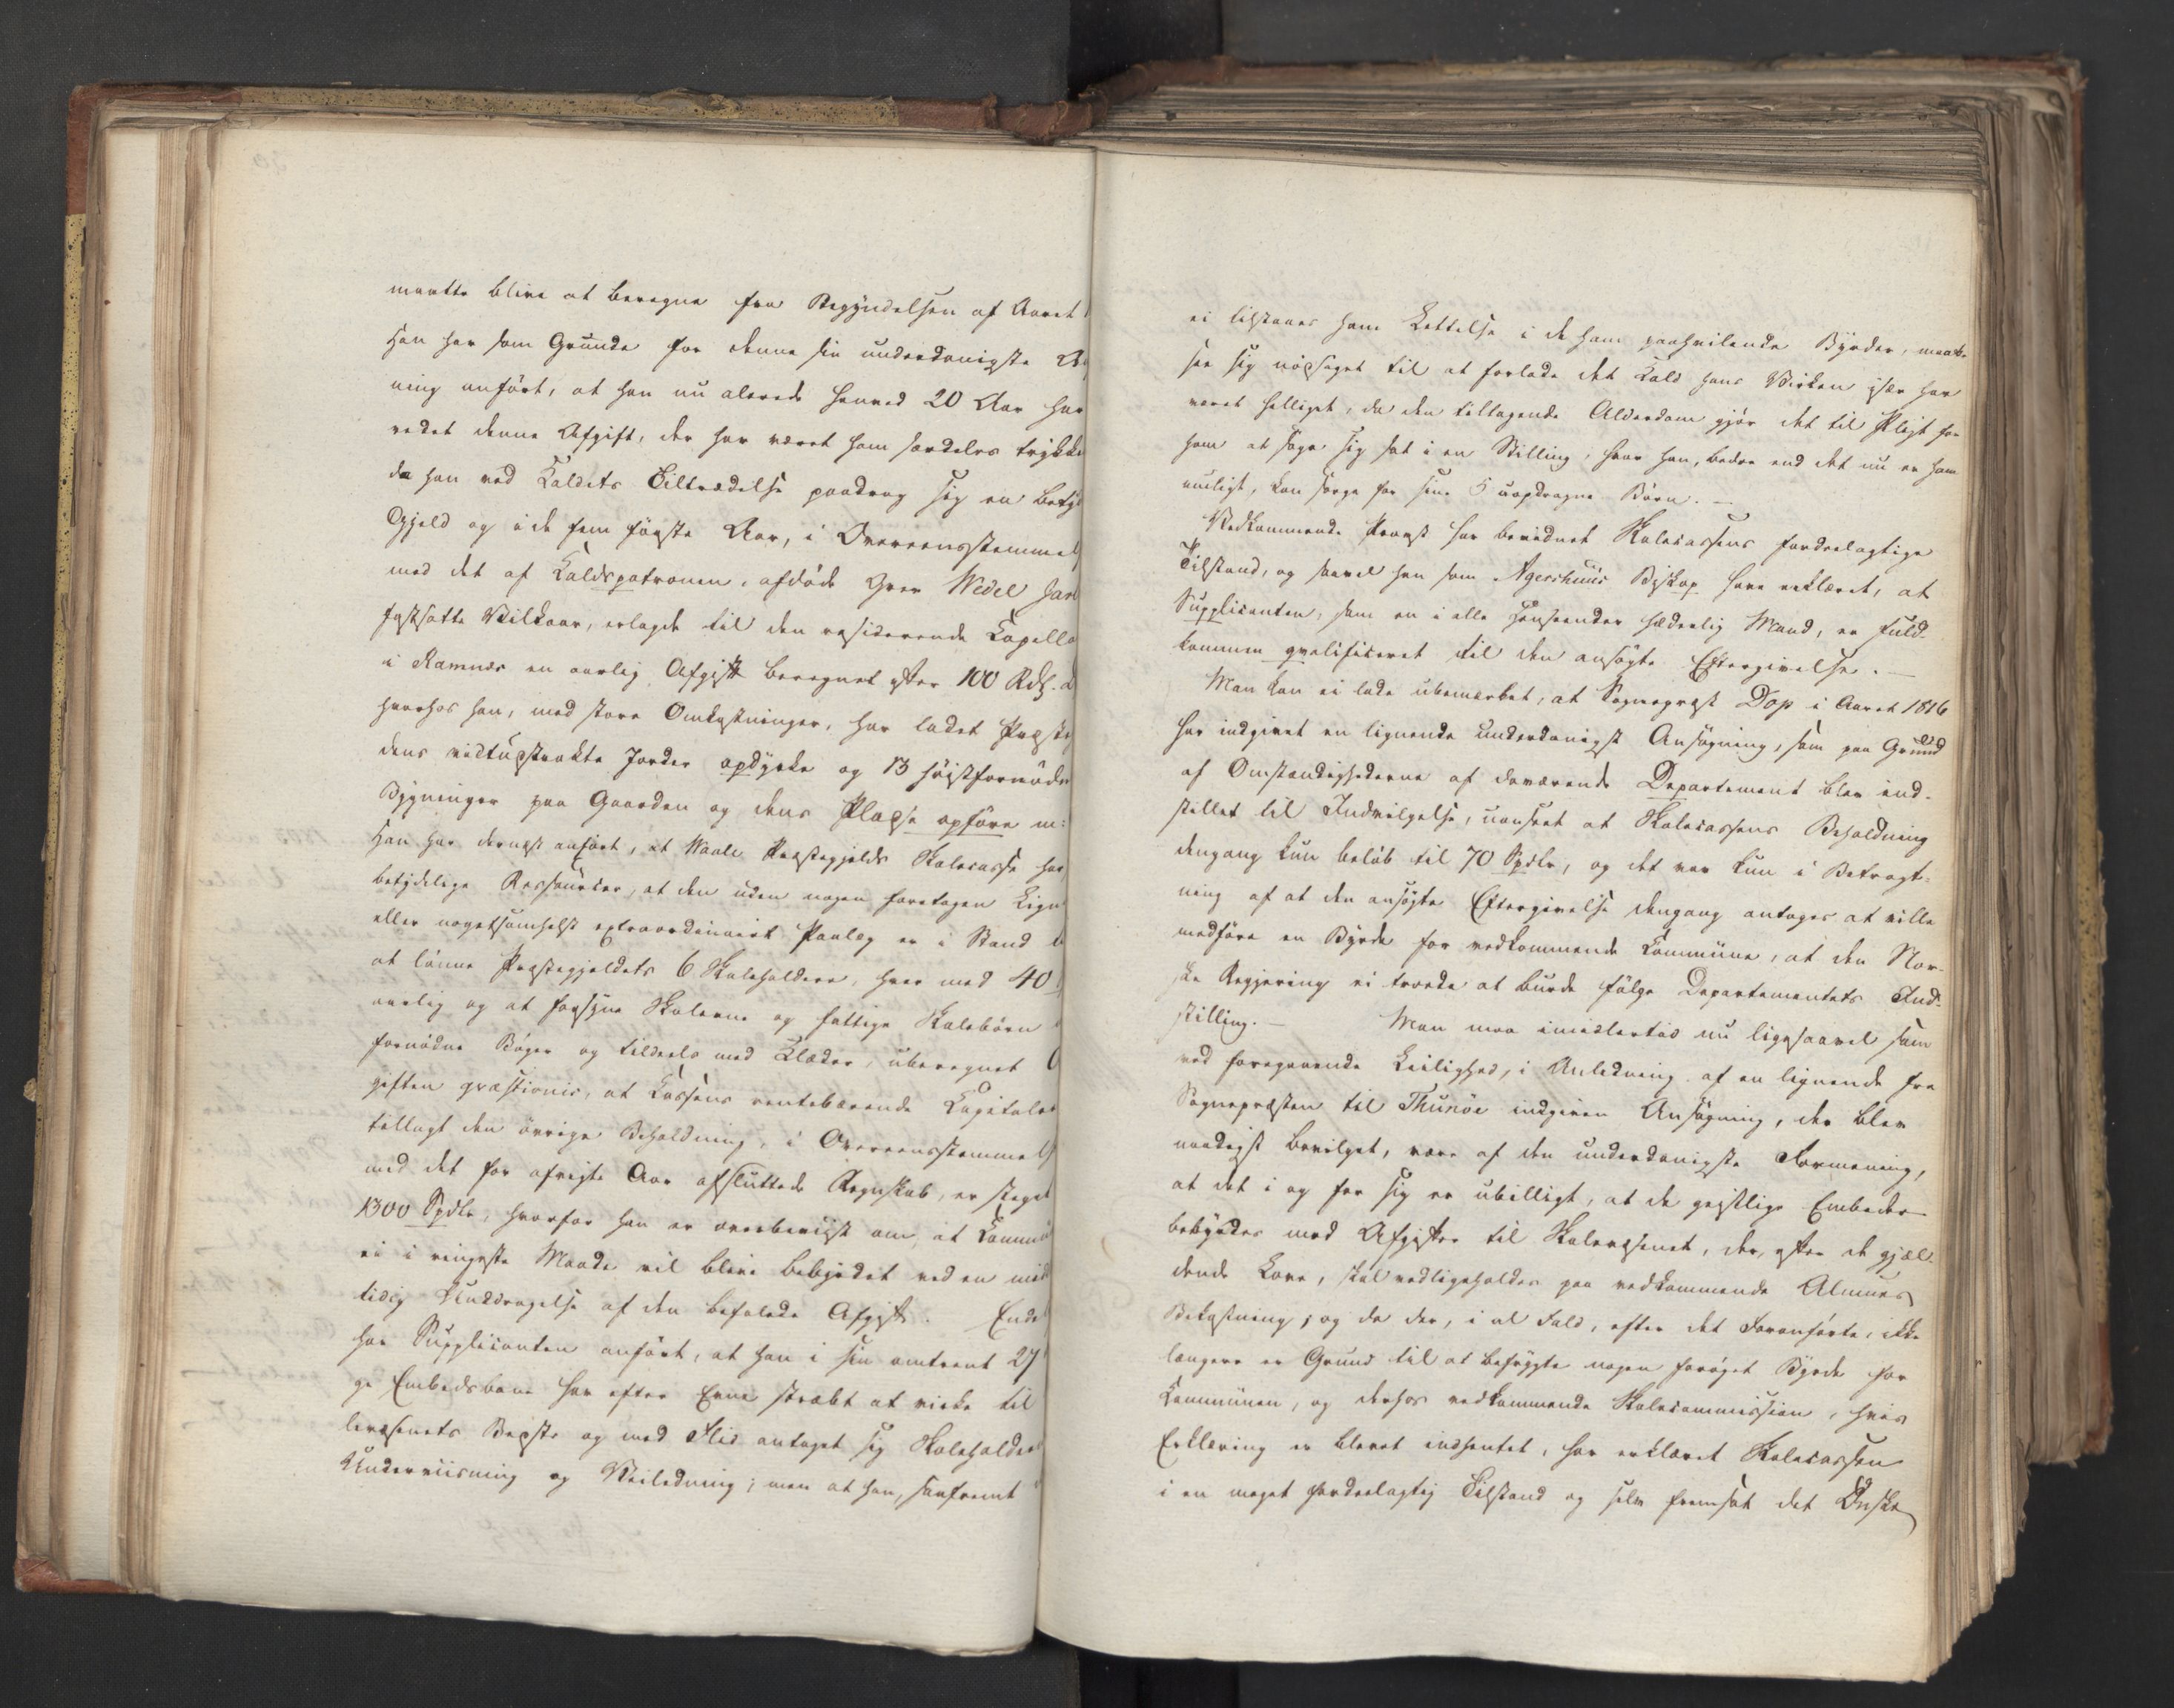 maatte blive at beregne fra Begyndelsen af Aaret
Han har som Grunde for denne sin underdanigste
ning anført, at han nu alerede henved 20 Aar har
redet denne Afgift, der har været ham særdeles trykke
da han ved Kaldets Tiltrædelse paadrog sig en betyd
Gjeld og i de fem første Aar, i Overeensstemmel
med det af Kaldspatronen, afdøde Grev Wedel Jarl
fastsatte Vilkaar, erlagde til den residerende Capella
i Ramnes en aarlig Afgift beregnet efter 100 Rdl.
hvorhos han, med store Omkostninger, har ladet Præste
dens vidtudstrakte Jorder opdyrke og 13 høistfornødn
Bygninger paa Gaarden og dens Pladse opføre m:
Han har dernæst anført, at Waale Præstegjelds Skolecasse har
betydelige Ressourcer, at den uden nogen foretagen Lign
eller nogetsomhelst extraordinairt Paalæg er i Stand
at lønne Præstegjeldets 6 Skoleholdere, hver med 40
aarlig og at forsyne Skolerne og fattige Skolebørn
fornødne Bøger og tildeels med Klæder, uberegnet
giften qvæstionis, at Cassens rentebærende Capitaler
tillagt den øvrige Beholdning, i Overeensstemmels
med det for afvigte Aar afsluttede Regnskab, er steget
1300 Spdlr, hvorfor han er overbeviist om, at Commu
ei i ringeste Maade vil blive bebyrdet ved en
tidig Unddragelse af den befalede Afgift. Ende
har Supplicanten anført, at han i sin omtrent 27
ge Embedsbane har efter Evne stræbt at virke til
levæsenets Bedste og med Flid antaget sig Skoleholder
Underviisning og Veiledning; men at han, saafremt
ei tilstaaes ham Lettelse i de ham paahvilende Byrder, maatte
see sig nødsaget til at forlade det Kald hans Virken især har
været helliget, da den tiltagende Alderdom gjør det til Pligt for
ham at søge sig sat i en Stilling, hvor han, bedre end det nu er ham
muligt, kan sørge for sine 5 uopdragne Børn. —
Vedkommende Provst har bevidnet Skolecassens fordeelagtige
Tilstand, og saavel han som Agershuus Biskop have erklæret, at
Supplicanten, som en i alle Henseender hæderlig Mand, er fuld-
kommen qvalificeret til den ansøgte Eftergivelse. —
Man kan ei lade ubemærket, at Sognepræst Dop i Aaret 1816
har indgivet en lignende underdanigst Ansøgning, som paa Grund
af Omstændighederne af daværende Departement blev ind-
stillet til Indvilgelse, uanseet at Skolecassens Beholdning
dengang kun beløb til 70 Spdlr, og det var kun i Betragt-
ning af at den ansøgte Eftergivelse dengang antoges at ville
medføre en Byrde for vedkommende Commune, at den Nor-
ske Regjering ei troede at burde følge Departementets Ind-
stilling. — Man maa imidlertid nu ligesaavel som
ved foregaaende Leilighed, i Anledning af en lignende fra
Sognepræsten til Thunøe indgiven Ansøgning, der blev
naadigst bevilget, være af den underdanigste Formening,
at det i og for sig er ubilligt, at de geistlige Embeder
bebyrdes med Afgifter til Skolevæsenet, der, efter de gjæl-
dende Love, skal vedligeholdes paa vedkommende Almues
Bekostning; og da der, i al Fald, efter det Foranførte, ikke
længere er Grund til at befrygte nogen forøget Byrde for
Communen, og derhos vedkommende Skolecommission, hvis
Erklæring er blevet indhentet, har erklæret Skolecassen
i en meget fordeelagtig Tilstand og selv fremsat det Ønske